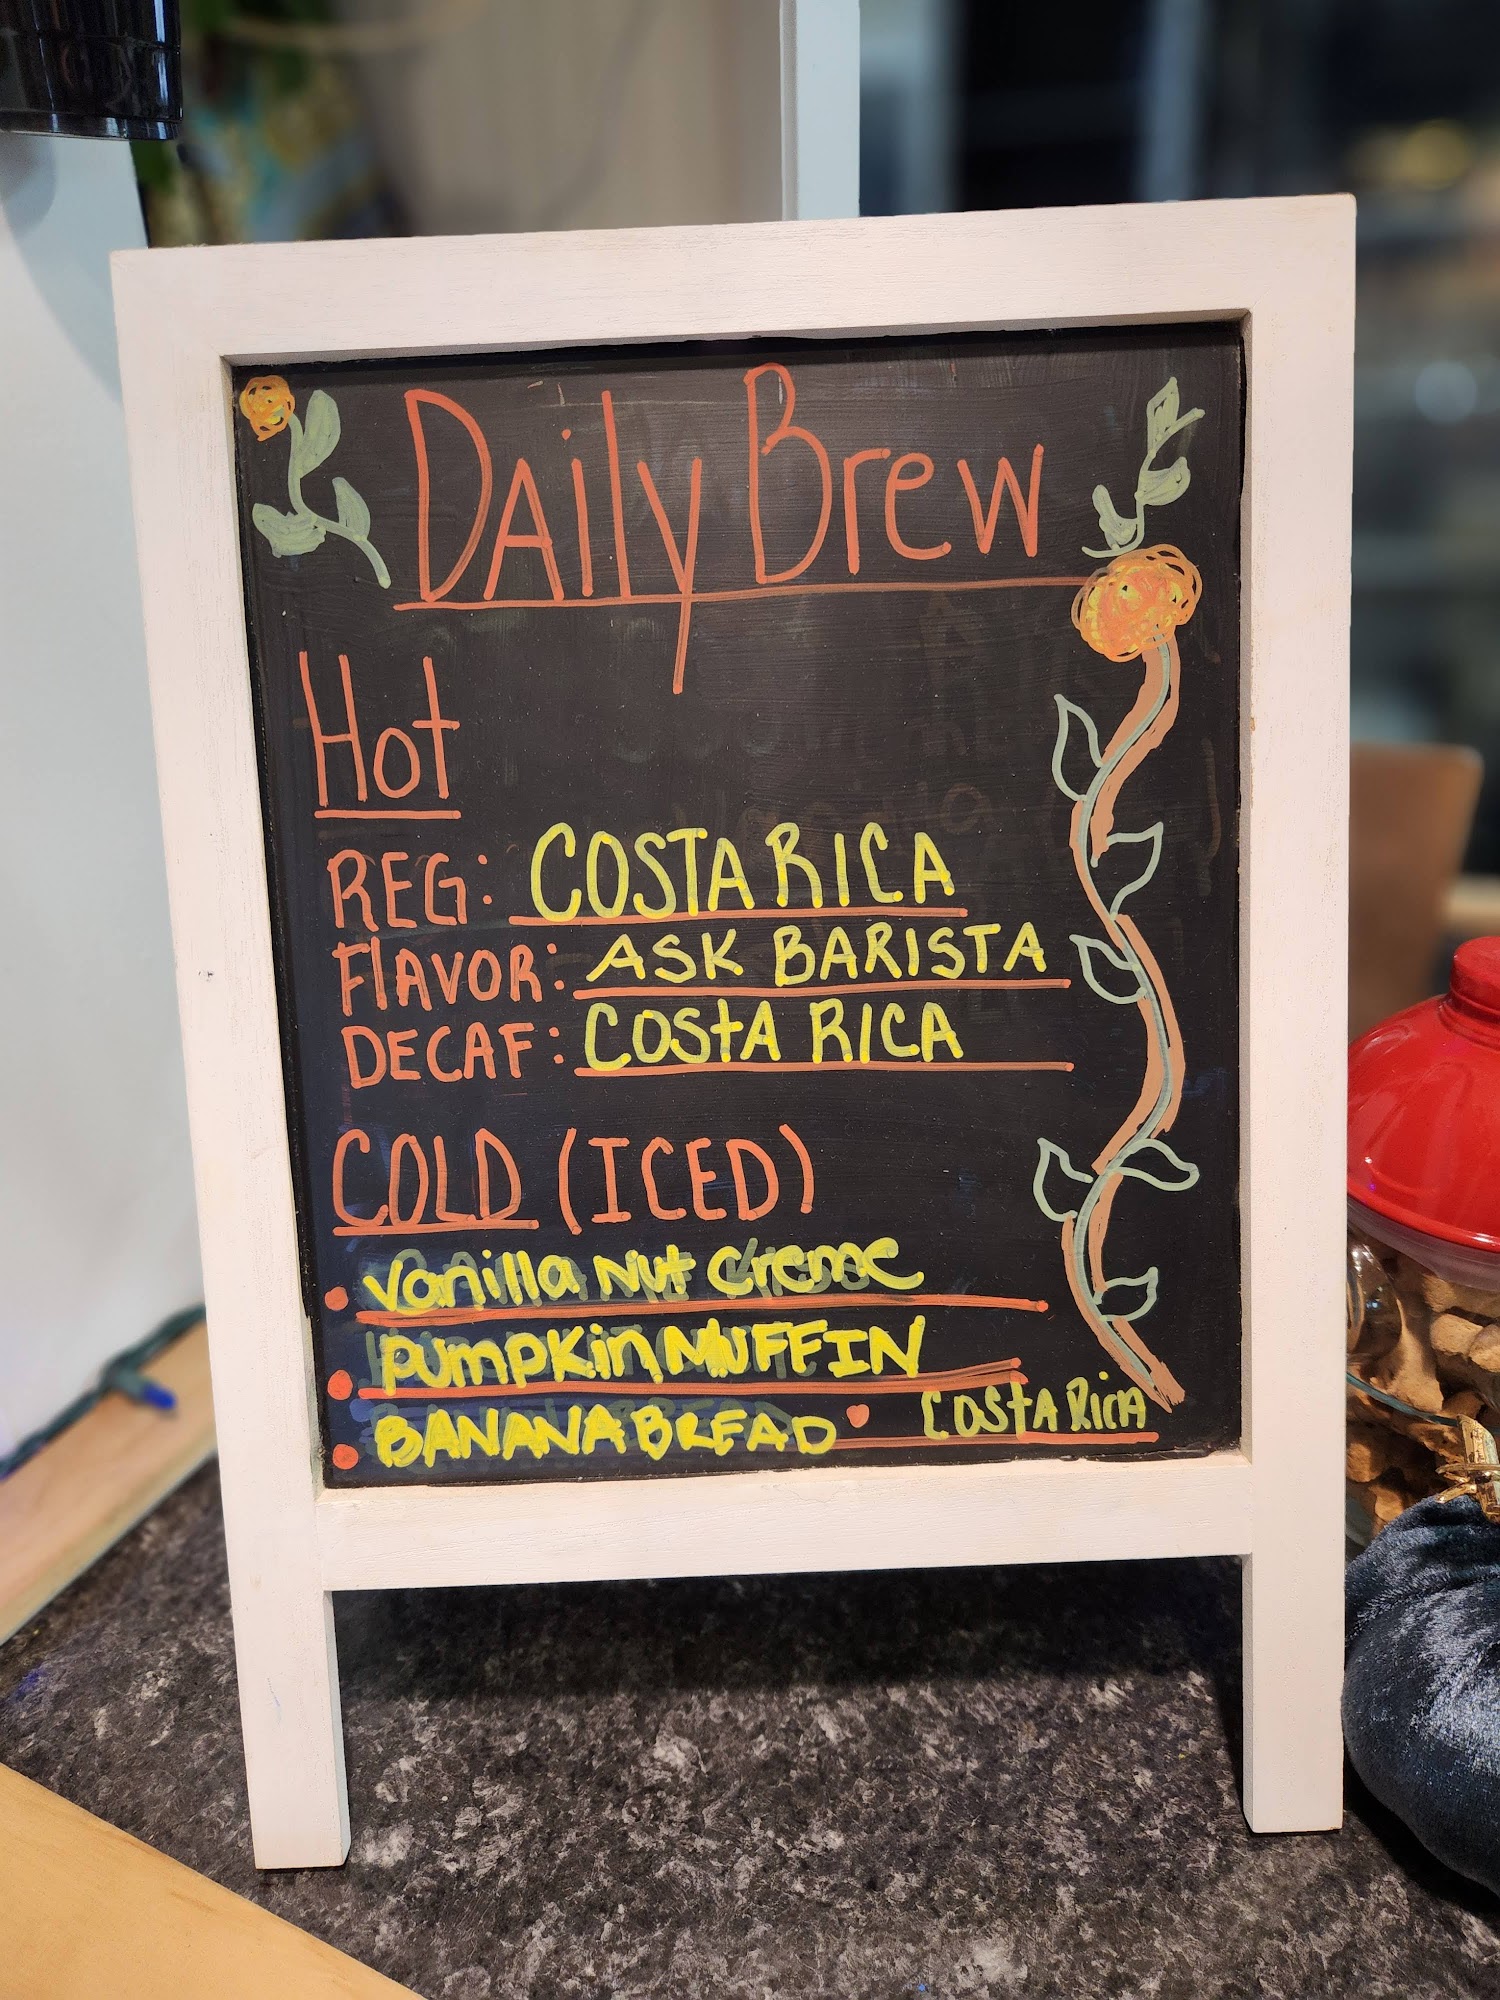 DAily Brew
Hot
REG: COSTA RICA
FlAVOR: ASK BARISTA
DECAF: COStA RICA
COLD (ICED)
• Vanilla Nut Creme
• PUmpKin MUFFIN
• BANANA BREAD • COStA RicA